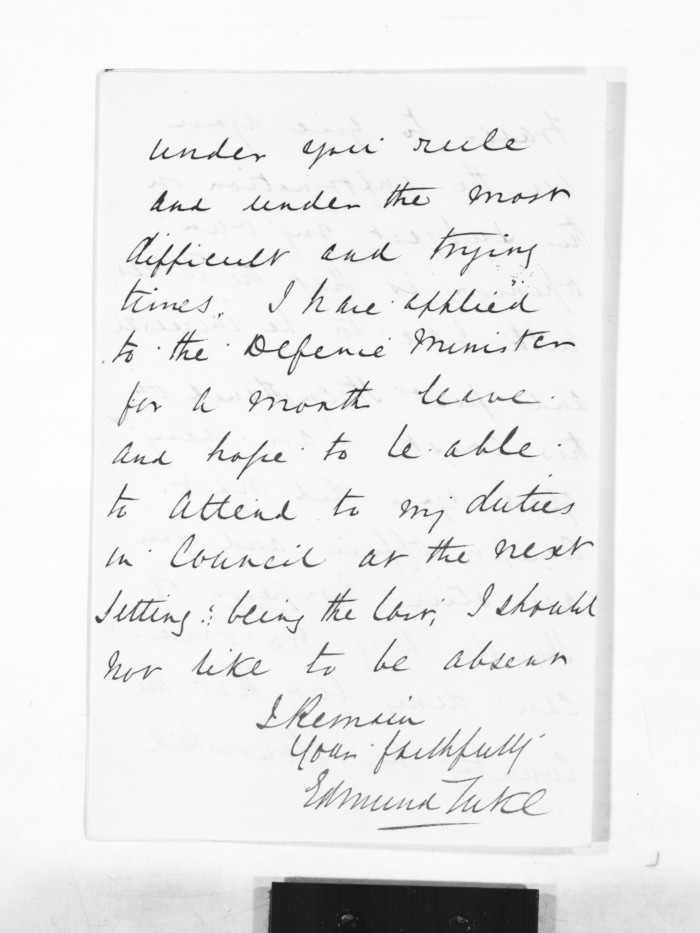 under your rule
and under the most
difficult and trying
times. I have applied
to the Defence Minister
for a month leave
and hope to be able
to attend to my duties
in Council at the next
Sitting; being the last, I should
not like to be absent
I Remain
Your faithfully
Edmund Tuke